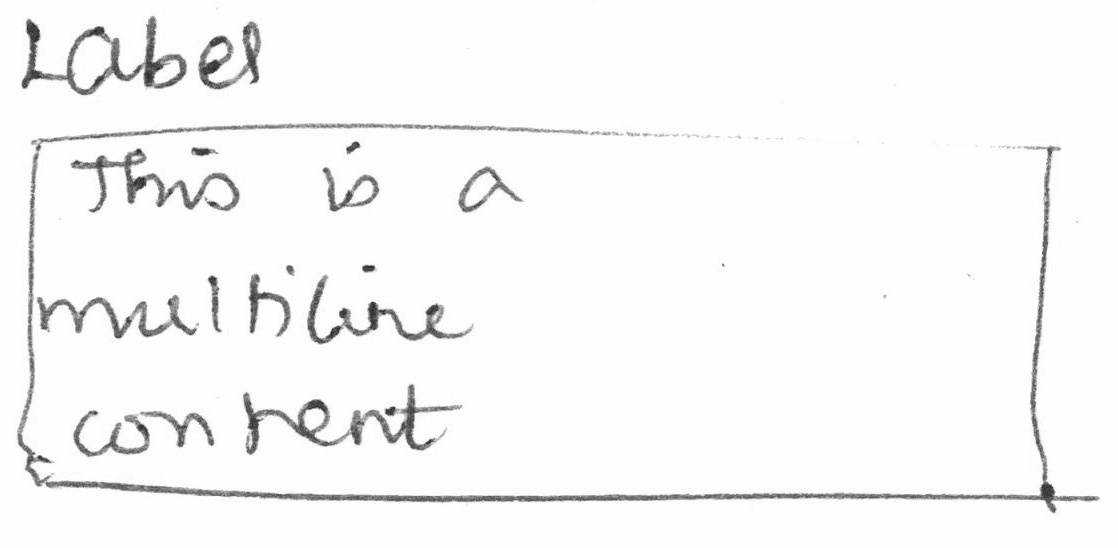 Label
This is a
multiline
content